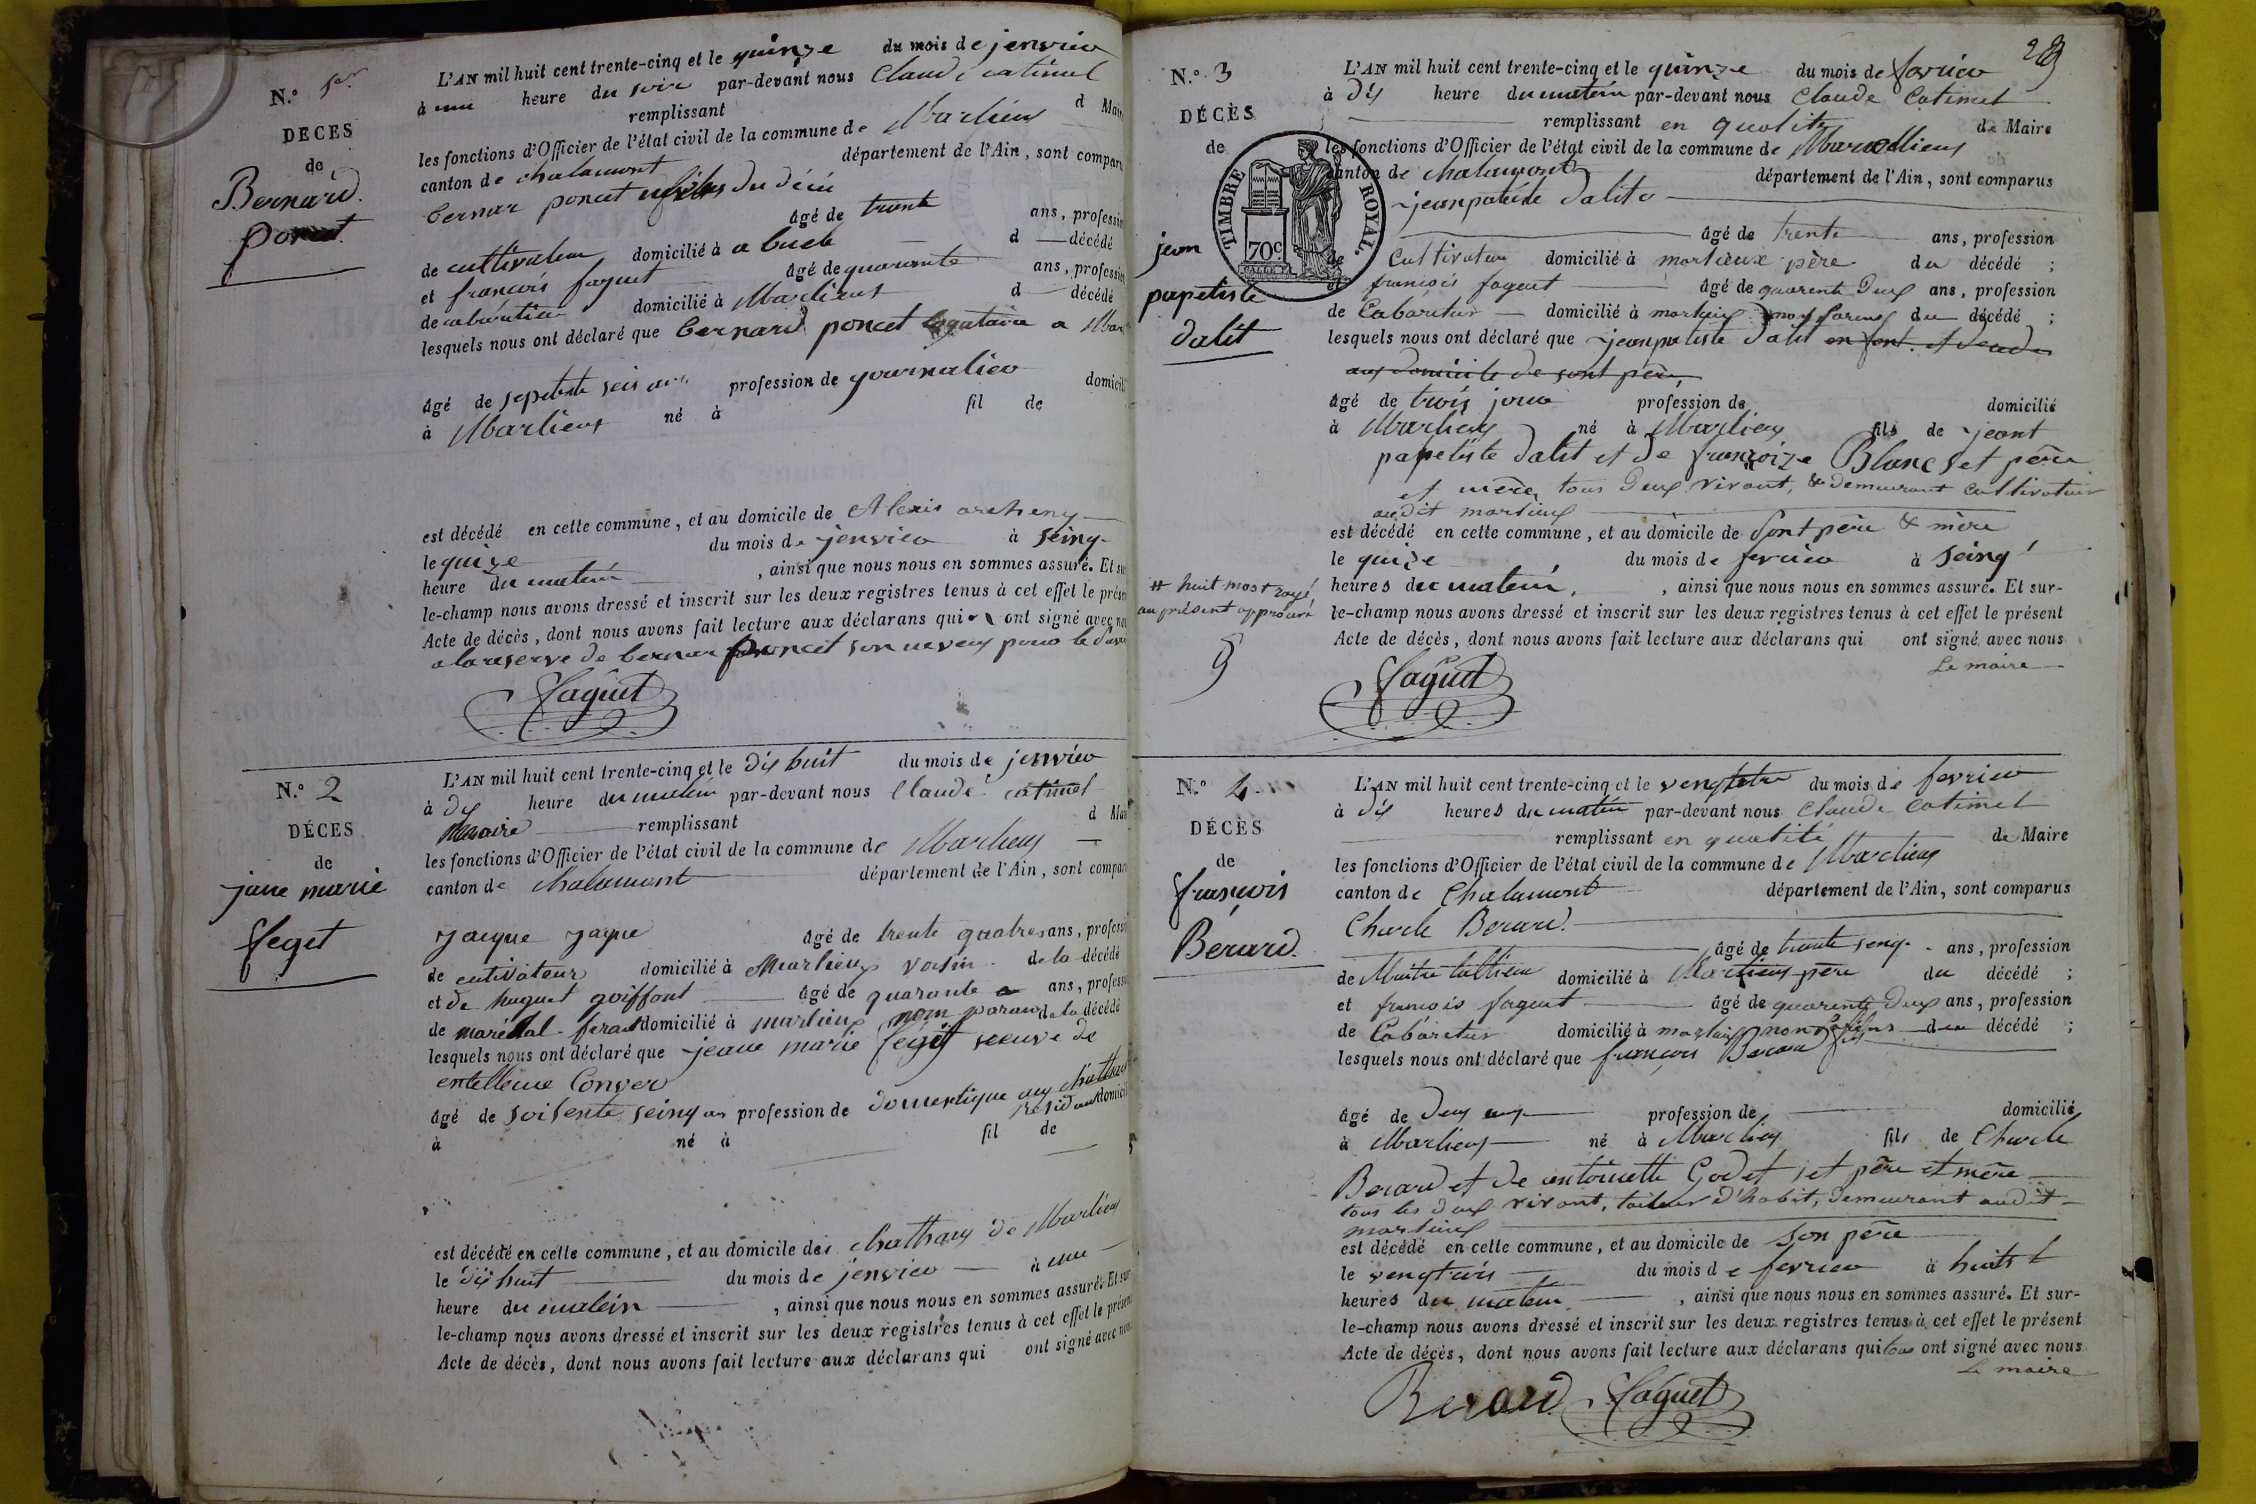 N.° 1er
DÉCES
de
Bernard
poncet
L'AN mil huit cent trente-cinq et le quinze du mois de jenvieo
à une heure du soir par-devant nous Claude catimel
remplissant d Mair
les fonctions d'Officier de l'état civil de la commune de Marlieux
canton de chalamont département de l'Ain, sont compar
bernar poncet du
âgé de trante ans, profession
de cultivateur domicilié à d décédé
et francois faguet âgé de quarante ans, profession
de domicilié à Marlieux d décédé
lesquels nous ont déclaré que bernard poncet a Mar
âgé de septente seis ans profession de journalieo domicili
à Marlieux né à fil de
est décédé en cette commune, et au domicile de Alexis
le quize du mois de jenvieo à seinq
heure du matein, ainsi que nous nous en sommes assuré. Et su
le-champ nous avons dressé et inscrit sur les deux registres tenus à cet effet le présen
Acte de décès, dont nous avons fait lecture aux déclarans qui ont signé avec nou
a la reserve de bernar poncet son neveux pour le
faguet
N.° 2
DÉCES
de
jane marie
feget
L'AN mil huit cent trente-cinq et le dix huit du mois de jenvieo
à dix heure du matein par-devant nous Claude catimel
maire remplissant d Mai
les fonctions d'Officier de l'état civil de la commune de Marlieux
canton de chalamont département de l'Ain, sont compar
jacque jaque âgé de trente quatre ans, professi
de cutivateur domicilié à Marlieux voisin de la décédé
et de huguet goiffont âgé de quarante ans, profess
de maréchal-ferant domicilié à marlieux nom parant de la décédé
lesquels nous ont déclaré que jeane marie feget veuve de
entelleme Conver
âgé de soisente seinq an profession de domestique domicil
à né à fil de
est décédé en cette commune, et au domicile des de Marlieux
le dix huit du mois de jenvieo à une
heure du matein, ainsi que nous nous en sommes assuré. Et sur
le-champ nous avons dressé et inscrit sur les deux registres tenus à cet effet le présen
Acte de décès, dont nous avons fait lecture aux déclarans qui ont signé avec nou
N.° 3
DÉCÈS
de
jean
papetiste
dalit
TIMBRE ROYAL
70c
L'AN mil huit cent trente-cinq et le quinze du mois de fevrieo
à dix heure du matein par-devant nous Claude Catimel
remplissant en qualité de Maire
les fonctions d'Officier de l'état civil de la commune de Marlieux
canton de chalamont département de l'Ain, sont comparus
jean patiste dalit
âgé de trente ans, profession
de Cultivateur domicilié à marlieux père du décédé ;
et francois faguet âgé de quarente deux ans, profession
de Cabaretier domicilié à marlieux non parent du décédé ;
lesquels nous ont déclaré que jean patiste dalit
au domicile de sont père,
âgé de trois jour profession de domicilié
à Marlieux né à Marlieux fils de jeant
papetiste dalit et de françoize Blanc set père
et mère, tous deux vivant, & demeurant cultivateur
audit marlieux
est décédé en cette commune, et au domicile de sont père & mère
le quize du mois de fevrieo à seinq
heures du matein, ainsi que nous nous en sommes assuré. Et sur-
le-champ nous avons dressé et inscrit sur les deux registres tenus à cet effet le présent
Acte de décès, dont nous avons fait lecture aux déclarans qui ont signé avec nous
Le maire
# huit most rayé
au présent approuvé
faguet
N.° 4
DÉCÈS
de
françois
Bérard
L'AN mil huit cent trente-cinq et le du mois de fevrieo
à dix heures du matin par-devant nous Claude Catimel
remplissant en qualité de Maire
les fonctions d'Officier de l'état civil de la commune de Marlieux
canton de Chalamont département de l'Ain, sont comparus
Charle Berard
âgé de trante seinq ans, profession
de Maitre domicilié à Marlieux père du décédé ;
et francois faguet âgé de quarente deux ans, profession
de Cabaretier domicilié à marlieux non parens du décédé ;
lesquels nous ont déclaré que françois Berard fils
âgé de deux ans profession de domicilié
à Marlieux né à Marlieux fils de Charle
Berard et de antoinette Godet set père et mère
tous les deux vivant, tailleur d'habit, demeurant audit
marlieux
est décédé en cette commune, et au domicile de son père
le vengtrois du mois de fevrieo à huit
heures du matein, ainsi que nous nous en sommes assuré. Et sur-
le-champ nous avons dressé et inscrit sur les deux registres tenus à cet effet le présent
Acte de décès, dont nous avons fait lecture aux déclarans qui ont signé avec nous
Le maire
Berard faguet